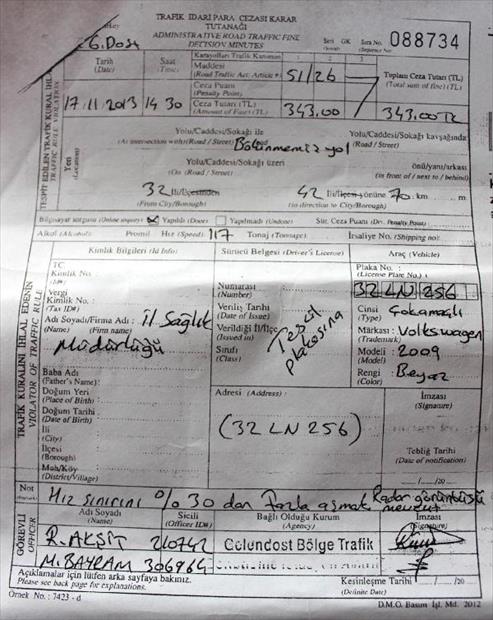 TRAFİK İDARİ PARA CEZASI KARAR
TUTANAĞI
ADMINISTRATIVE ROAD TRAFFIC FINE
DECISION MINUTES
Seri GK Sıra No. 088734
G.Dost
Tarih (Date) Saat (Time)
Karayolları Trafik Kanunun
Maddesi
(Road Traffic Act. Article #) 51/2b
Toplam Ceza Tutarı (TL)
(Total sum of fine) (TL)
Ceza Puanı
(Penalty Point)
17.11.2013 14 30 Ceza Tutarı (TL)
(Amount of Fine) (TL) 343.00 343.00 TL
TESPİT EDİLEN TRAFİK KURAL İHL
TRAFFIC RULE VIOLATION
Yeri
(Location)
Yolu/Caddesi/Sokağı ile Yolu/Caddesi/Sokağı kavşağında
(As intersection with) (Road / Street) Bölünmemiş yol (Road / Street)
Yolu/Caddesi/Sokağı üzeri önü/yanı/arkası
(On) (Road / Street) (in front of / next to / behind)
32 İli/İlçesinden 42 İli/İlçesi yönüne 70 km ... m
(From City/Borough) (in direction to City/Borough)
Bilgisayar sorgusu (Online inquiry) Yapıldı (Done) Yapılmadı (Undone) Sür. Ceza Puanı (Dri. Penalty Point)
Alkol (Alcohol) Promil Hız (Speed) 117 Tonaj (Tonnage) İrsaliye No. (Shipping no)
TRAFİK KURALINI İHLAL EDENİN
VIOLATOR OF TRAFFIC RULE
Kimlik Bilgileri (Id Info) Sürücü Belgesi (Driver's License) Araç (Vehicle)
TC.
Kimlik No. :
(Id#)
Vergi
Kimlik No. :
(Tax ID#)
Adı Soyadı/Firma Adı : İl Sağlık
(Name) (Firm name)
Müdürlüğü
Baba Adı
(Father's Name) :
Doğum Yeri
(Place of Birth) :
Doğum Tarihi
(Date of Birth) :
İli
(City) :
İlçesi
(Borough) :
Mah/Köy
(District/Village) :
Numarası
(Number)
Veriliş Tarihi
(Date of Issue)
Verildiği İl/İlçe
(Issued in)
Sınıfı
(Class)
Tescil
plakasına
Plaka No. :
(License Plate No.) :
32 LN 256
Cinsi : Çokamaçlı
(Type)
Markası : Volkswagen
(Trademark)
Modeli : 2009
(Model)
Rengi : Beyaz
(Color)
Adresi (Address) :
(32 LN 256)
İmzası
(Signature)
Tebliğ Tarihi
(Date of notification)
/ /20
Not Hız sınırını % 30 dan fazla aşmak Radar görüntüsü
mevcut
GÖREVLİ
OFFICER
Adı Soyadı
(Name)
Sicili
(Officer ID#)
Bağlı Olduğu Kurum
(Agency)
İmzası
(Signature)
R. AKSİT 210742 Gölundost Bölge Trafik
M. BAYRAM 306964
Açıklamalar için lütfen arka sayfaya bakınız.
Please see back page for explanations.
Kesinleşme Tarihi / /20
(Definite Date)
Örnek No. : 7423 - d D.M.O. Basım İşl. Md. 2012